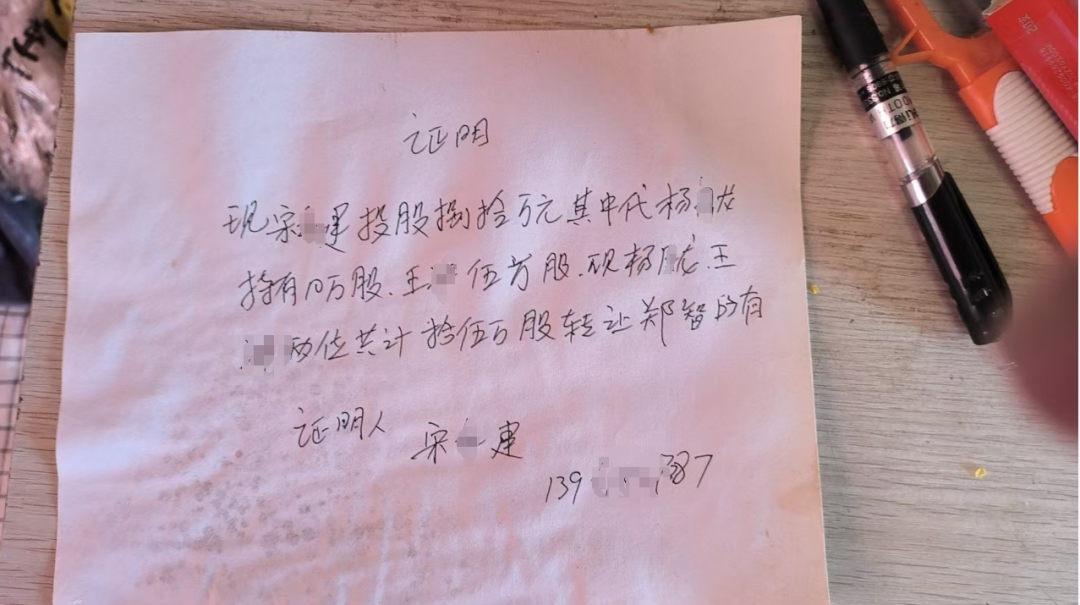 证明
现宋建投股捌拾万元其中代杨龙
持有10万股.王伍万股.现杨龙.王
两位共计拾伍万股转让郑智的有
证明人
宋建
139 387